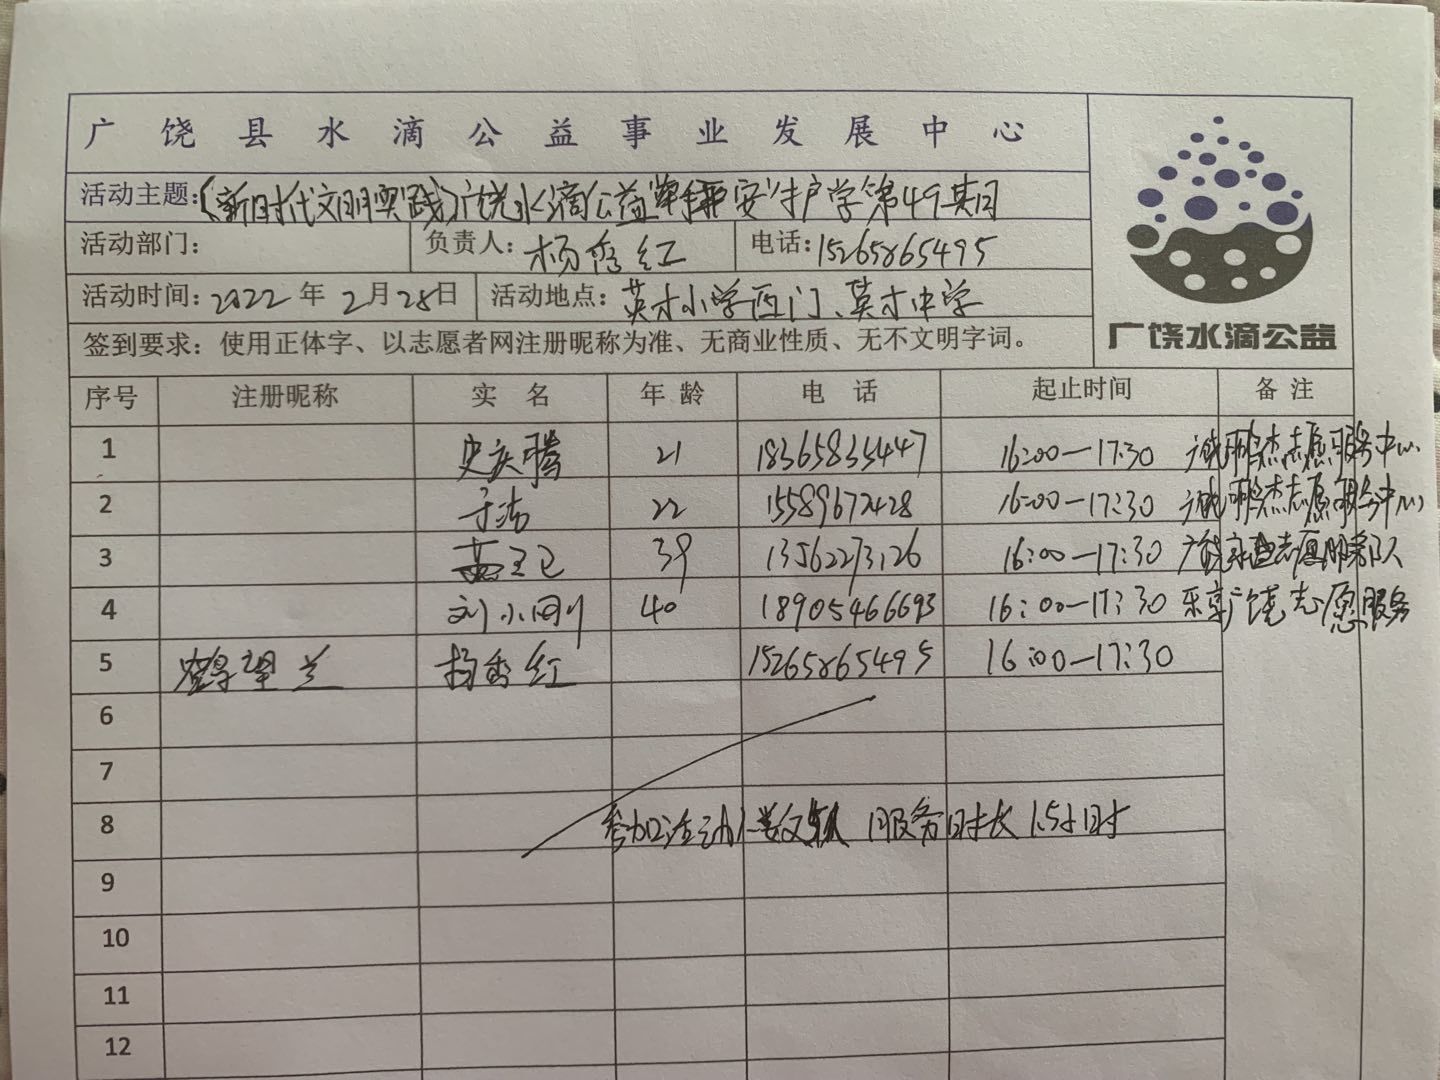 广饶县水滴公益事业发展中心
活动主题:《新时代文明实践》广饶水滴公益 平安护学第49期
活动部门: 负责人: 杨秀红 电话: 15265865495
活动时间: 2022年2月28日 活动地点: 英才小学西门、英才中学
签到要求: 使用正体字、以志愿者网注册昵称为准、无商业性质、无不文明字词。
广饶水滴公益
序号 注册昵称 实名 年龄 电话 起止时间 备注
1 史庆腾 21 18365835447 16:00—17:30 志愿服务中心
2 于洁 22 15589672428 16:00—17:30 志愿服务中心
3 39 13562273126 16:00—17:30 广饶 志愿服务队
4 刘小刚 40 18905466693 16:00—17:30 乐享广饶志愿服务
5 鹤望兰 杨秀红 15265865495 16:00—17:30
6
7
8 参加活动人数5人 服务时长1.5小时
9
10
11
12